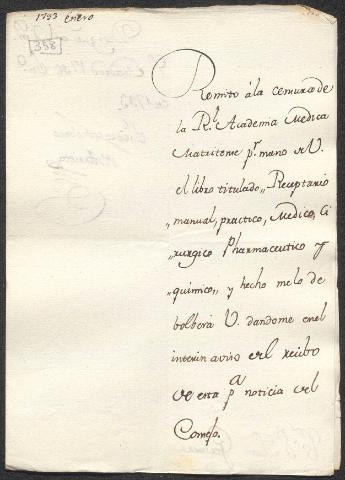 1793 enero
358
Remito á la censura de
la Rl. Academia Medica
Matritense pr. mano de V.
el libro titulado „ Receptario
„ manual, practico, Medico, Ci
„ rurgico Pharmaceutico y
„ quimico„ y hecho me lo de
bolberá V. dandome en el
interin aviso del recibo
de esta pa. noticia del
Consejo.